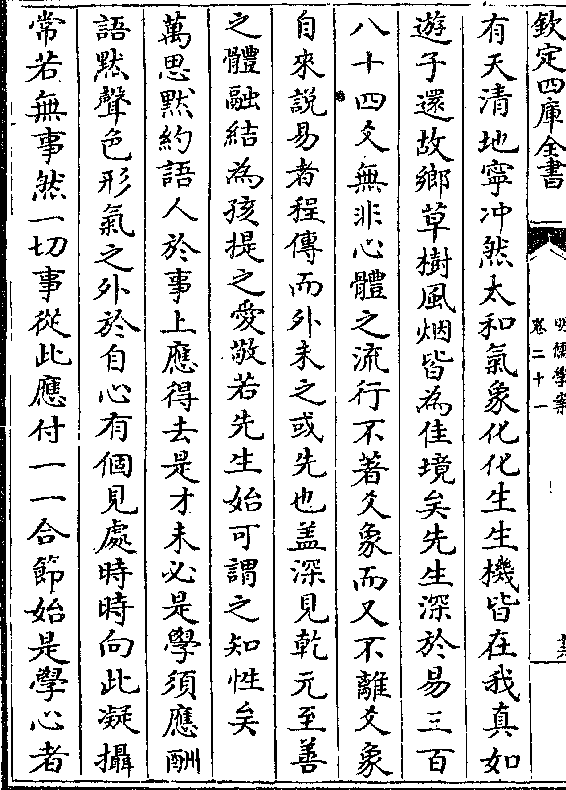 欽定四庫全書
明儒學案
卷二十一
有天清地寧冲然太和氣象化化生生機皆在我真如
遊子還故鄉草樹風烟皆為佳境矣先生深於易三百
八十四爻無非心體之流行不著爻象而又不離爻象
自來説易者程傳而外未之或先也盖深見乾元至善
之體融結為孩提之愛敬若先生始可謂之知性矣
萬思黙約語人於事上應得去是才未必是學須應酬
語黙聲色形氣之外於自心有個見處時時向此凝攝
常若無事然一切事從此應付一一合節始是學心者